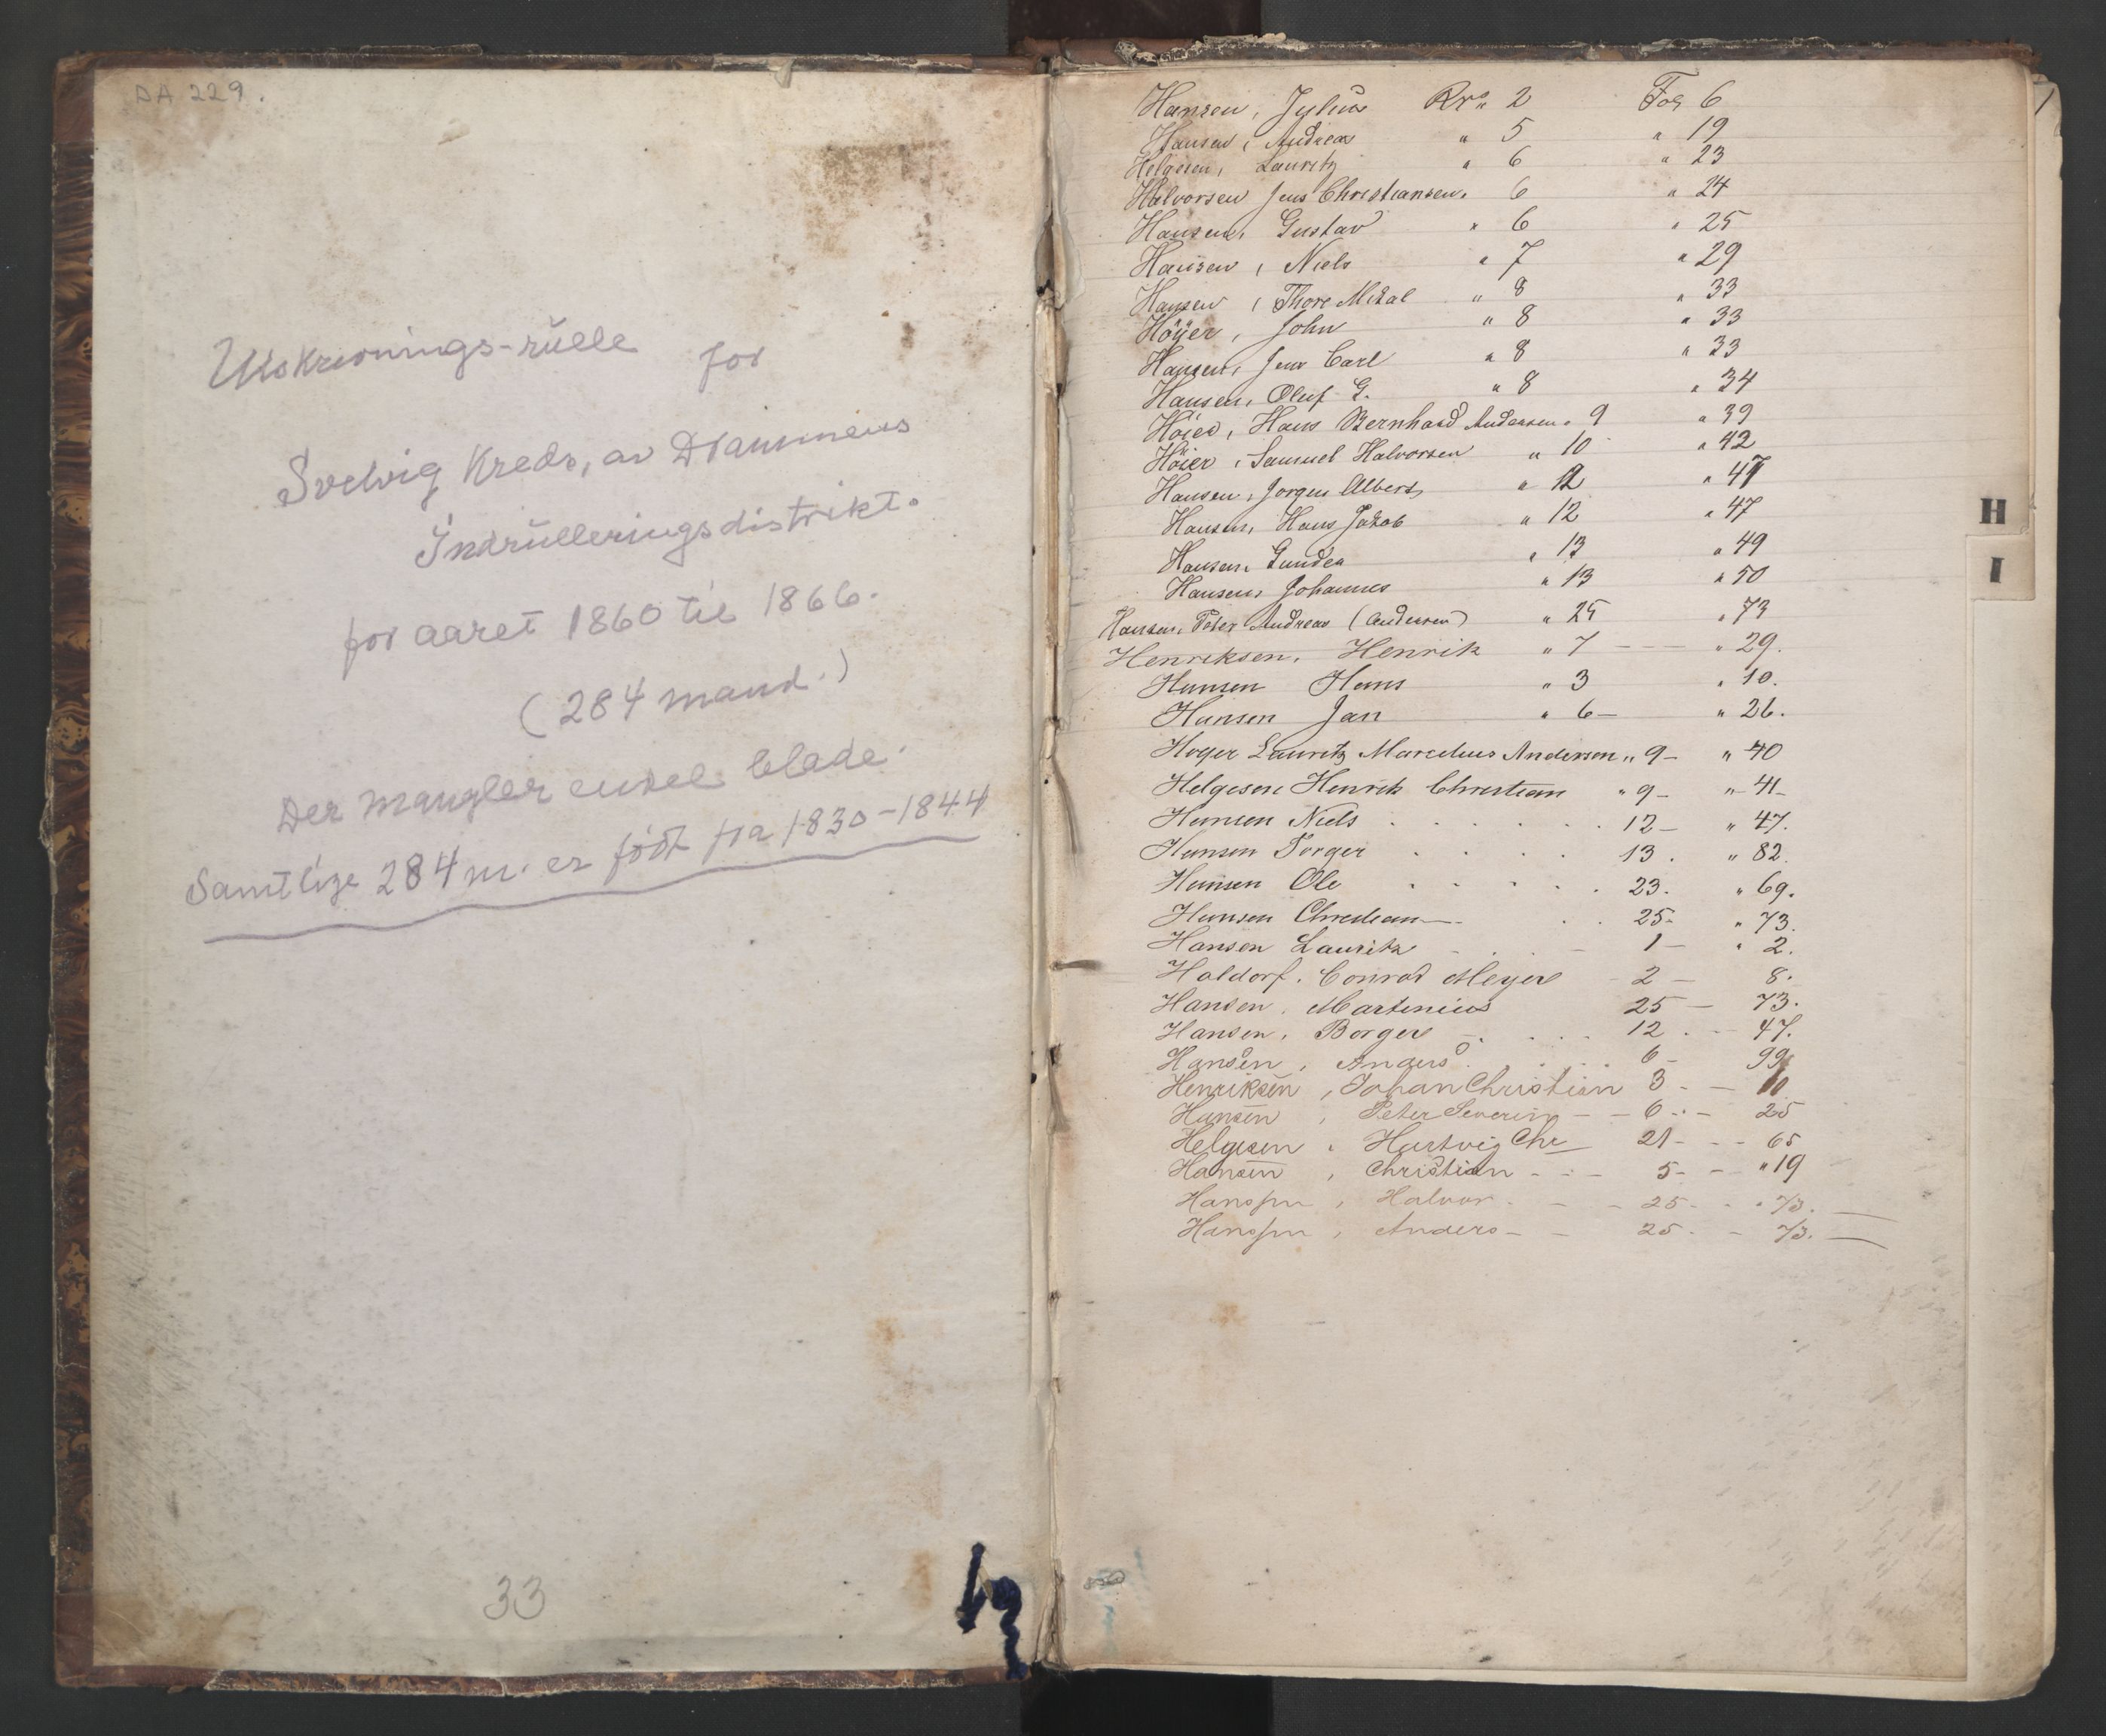 DA 229.
Utskrivnings-rulle for
Svelvig Kreds, av Drammens
Indrulleringsdistrikt.
for aaret 1860 til 1866.
(284 mand.)
Der mangler enkel blade.
Samtlige 284 m. er född fra 1830-1844
33
1
Hansen, Julius Kr. 2 Fol 6
Hansen, Andreas " 5 " 19
Helgesen, Lauritz " 6 " 23
Halvorsen Jens Christiansen " 6 " 24
Hansen, Gustav " 6 " 25
Hansen, Niels " 7 " 29
Hansen, Thore Mikal " 8 " 33
Höÿer, John " 8 " 33
Hansen, Jens Carl " 8 " 33
Hansen, Oluf G. " 8 " 34
Höier, Hans Bernhard Andersen " 9 " 39
Höier, Samuel Halvorsen " 10 " 42
Hansen, Jorgen Albert " 12 " 47
Hansen, Hans Jakob " 12 " 47
Hansen, Gunder " 13 " 49
Hansen, Johannes " 13 " 50
Hansen, Peter Andreas (Andersen) " 25 " 73
Henriksen, Henrik " 7 - - - " 29.
Hansen Hans " 3 " 10.
Hansen Jan " 6- " 26.
Hoyer Lauritz Marcelius Andersen " 9- " 40
Helgesen Henrik Christian " 9- " 41-
Hansen Niels . . . . . . 12- " 47.
Hansen Torger . . . . 13. " 82.
Hansen Ole . . . . . 23. " 69.
Hansen Christian . . 25- " 73.
Hansen Lauritz - . . - 1- " 2.
Haldorf. Conrad Meyer - 2 - 8.
Hansen, Martinius 25 - 73.
Hansen, Borger - . . . . 12 . - 47.
Hansen, Anders . . . . 6 - 99
Henriksen, Johan Christian 3 - - 10
Hansen, Peter Severin - - 6 . . - 25
Helgesen, Hartvig Chr 21 - - - 65
Hansen, Christian - - - 5 - - " 19
Hanssen, Halvor. - - 25 - . " 73.
Hanssen, Anders - - 25 . - 73.
H
I